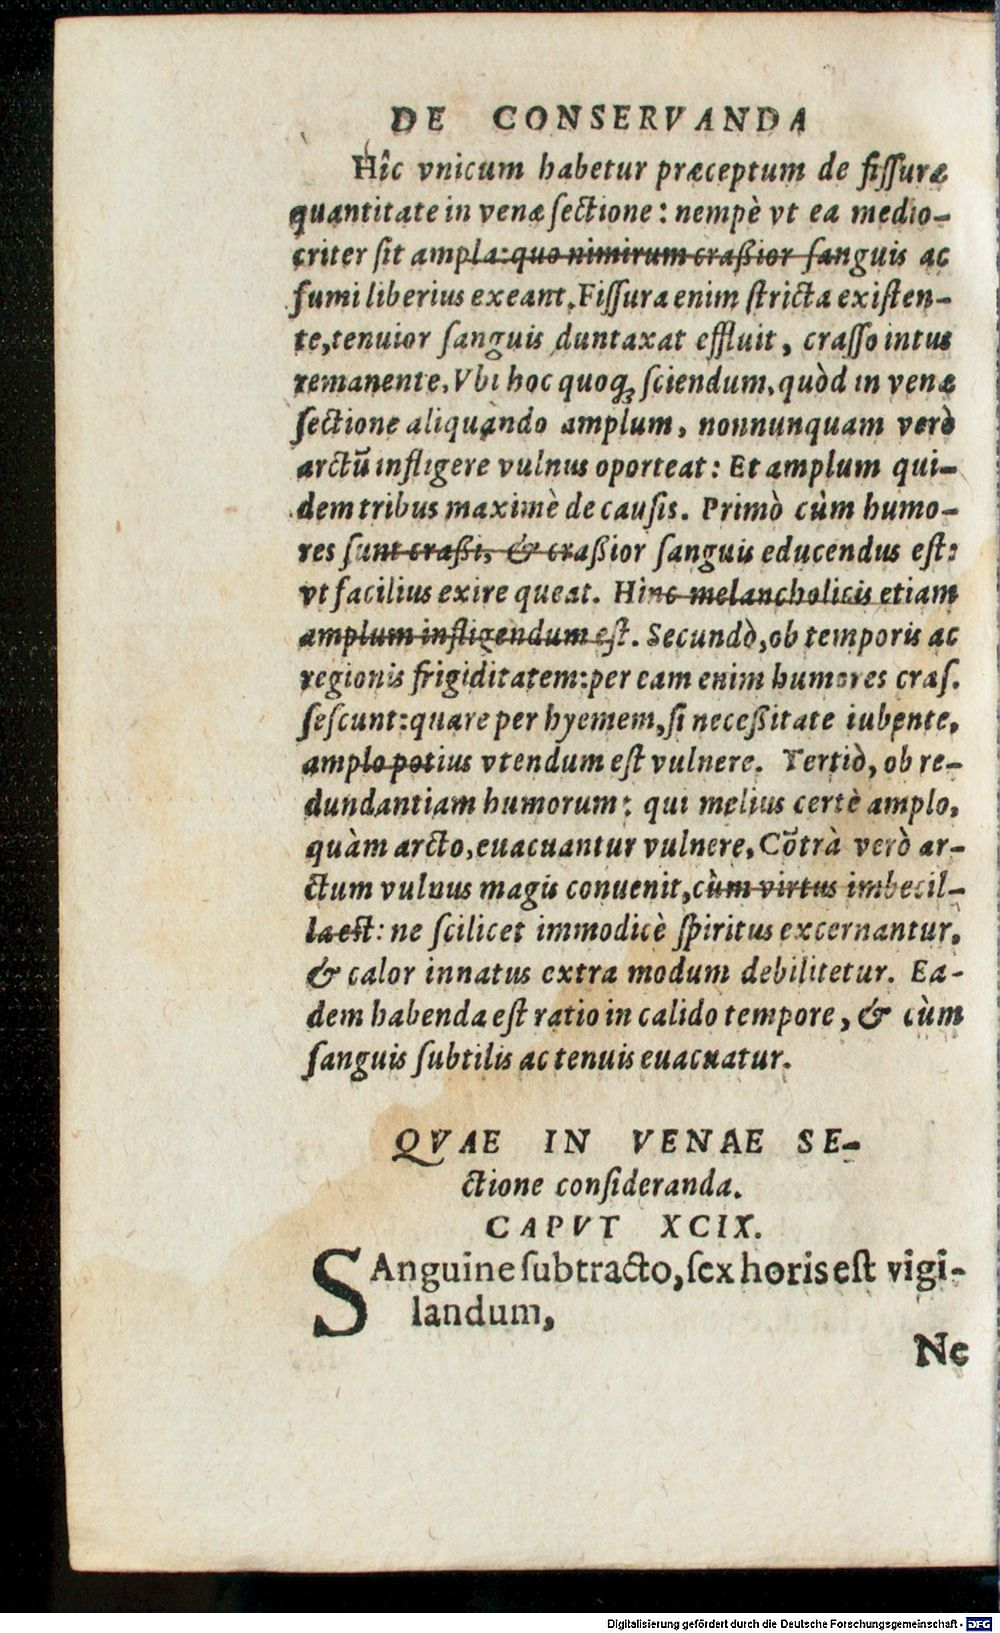 DE CONSERVANDA
Hîc vnicum habetur præceptum de fissuræ
quantitate in venæ sectione: nempè vt ea medio-
criter sit ampla: quo nimirum craßior sanguis ac
fumi liberius exeant. Fissura enim stricta existen-
te, tenuior sanguis duntaxat effluit, crasso intus
remanente. Vbi hoc quoq; sciendum, quòd in venæ
sectione aliquando amplum, nonnunquam verò
arctũ infligere vulnus oporteat: Et amplum qui-
dem tribus maximè de causis. Primò cùm humo-
res sunt craßi, & craßior sanguis educendus est:
vt facilius exire queat. Hinc melancholicis etiam
amplum infligendum est. Secundò, ob temporis ac
regionis frigiditatem: per eam enim humores cras.
sescunt: quare per hyemem, si neceßitate iubente,
amplo potius vtendum est vulnere. Tertiò, ob re-
dundantiam humorum: qui melius certè amplo,
quàm arcto, euacuantur vulnere. Cõtrà verò ar-
ctum vulnus magis conuenit, cùm virtus imbecil-
la est: ne scilicet immodicè spiritus excernantur,
& calor innatus extra modum debilitetur. Ea-
dem habenda est ratio in calido tempore, & cùm
sanguis subtilis ac tenuis euacuatur.
QVAE IN VENAE SE-
ctione consideranda.
CAPVT XCIX.
SAnguine subtracto, sex horis est vigi-
landum,
Ne
Digitalisierung gefördert durch die Deutsche Forschungsgemeinschaft - DFG